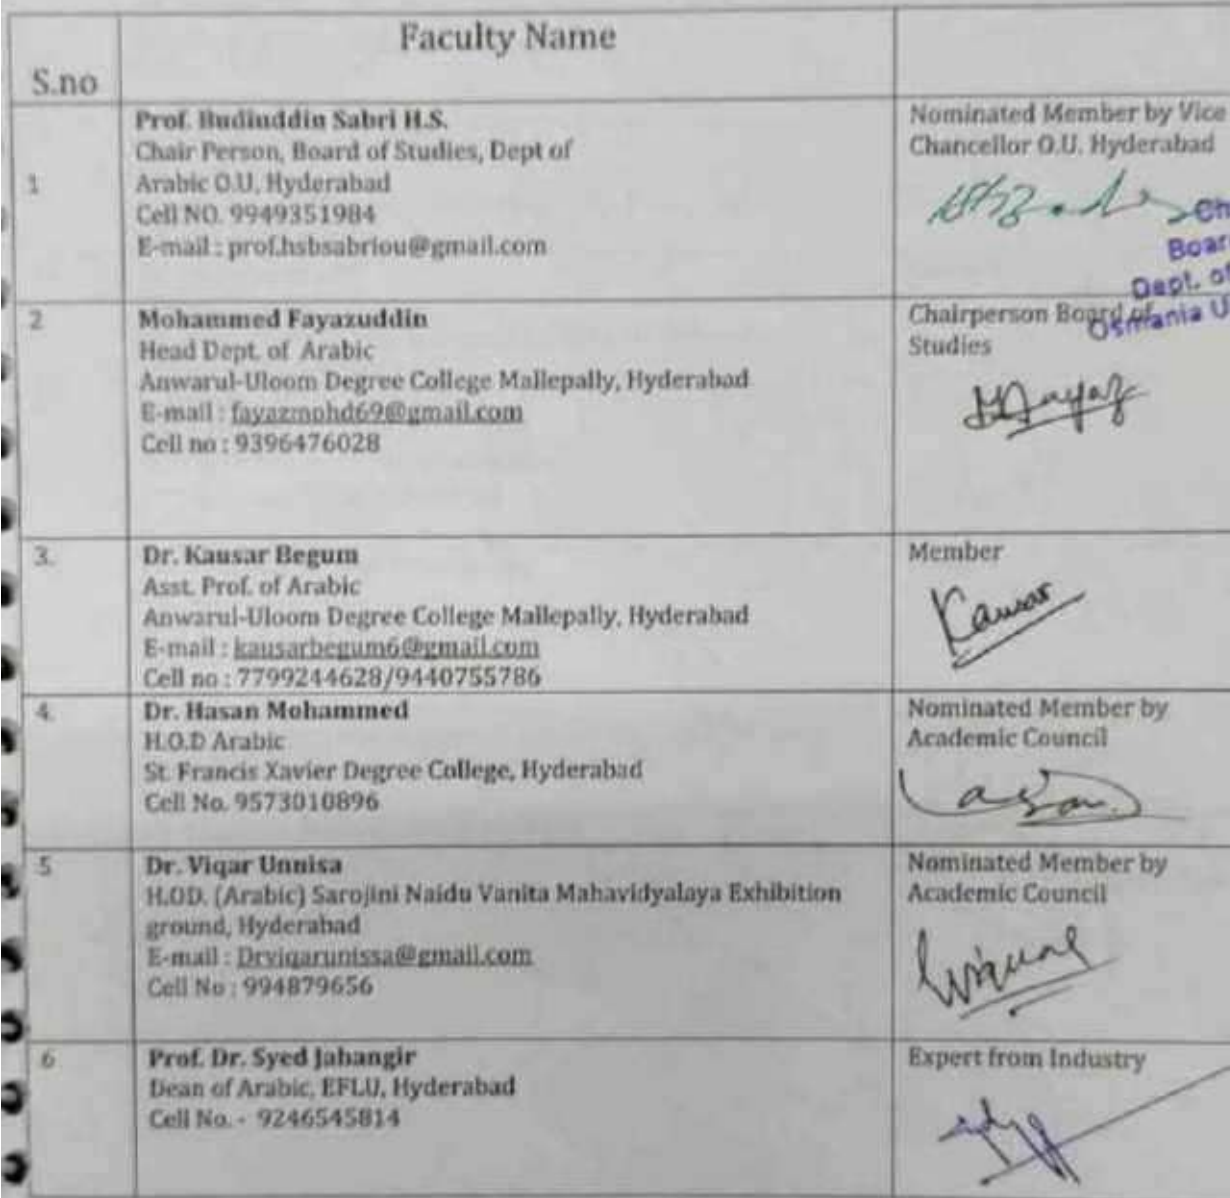 Faculty Name
S.no
1
Prof. Budiuddin Sabri H.S.
Chair Person, Board of Studies, Dept of
Arabic O.U, Hyderabad
Cell NO. 9949351984
E-mail : prof.hsbsabriou@gmail.com
Nominated Member by Vice
Chancellor O.U. Hyderabad
Ch
Boar
Dept. of
Osmania U
2
Mohammed Fayazuddin
Head Dept. of Arabic
Anwarul-Uloom Degree College Mallepally, Hyderabad
E-mail : fayazmohd69@gmail.com
Cell no : 9396476028
Chairperson Board of
Studies
MFayaz
3.
Dr. Kausar Begum
Asst. Prof. of Arabic
Anwarul-Uloom Degree College Mallepally, Hyderabad
E-mail : kausarbegum6@gmail.com
Cell no : 7799244628/9440755786
Member
Kausar
4.
Dr. Hasan Mohammed
H.O.D Arabic
St. Francis Xavier Degree College, Hyderabad
Cell No. 9573010896
Nominated Member by
Academic Council
5
Dr. Viqar Unnisa
H.OD. (Arabic) Sarojini Naidu Vanita Mahavidyalaya Exhibition
ground, Hyderabad
E-mail : Drviqarunissa@gmail.com
Cell No : 994879656
Nominated Member by
Academic Council
6
Prof. Dr. Syed Jahangir
Dean of Arabic, EFLU, Hyderabad
Cell No. - 9246545814
Expert from Industry